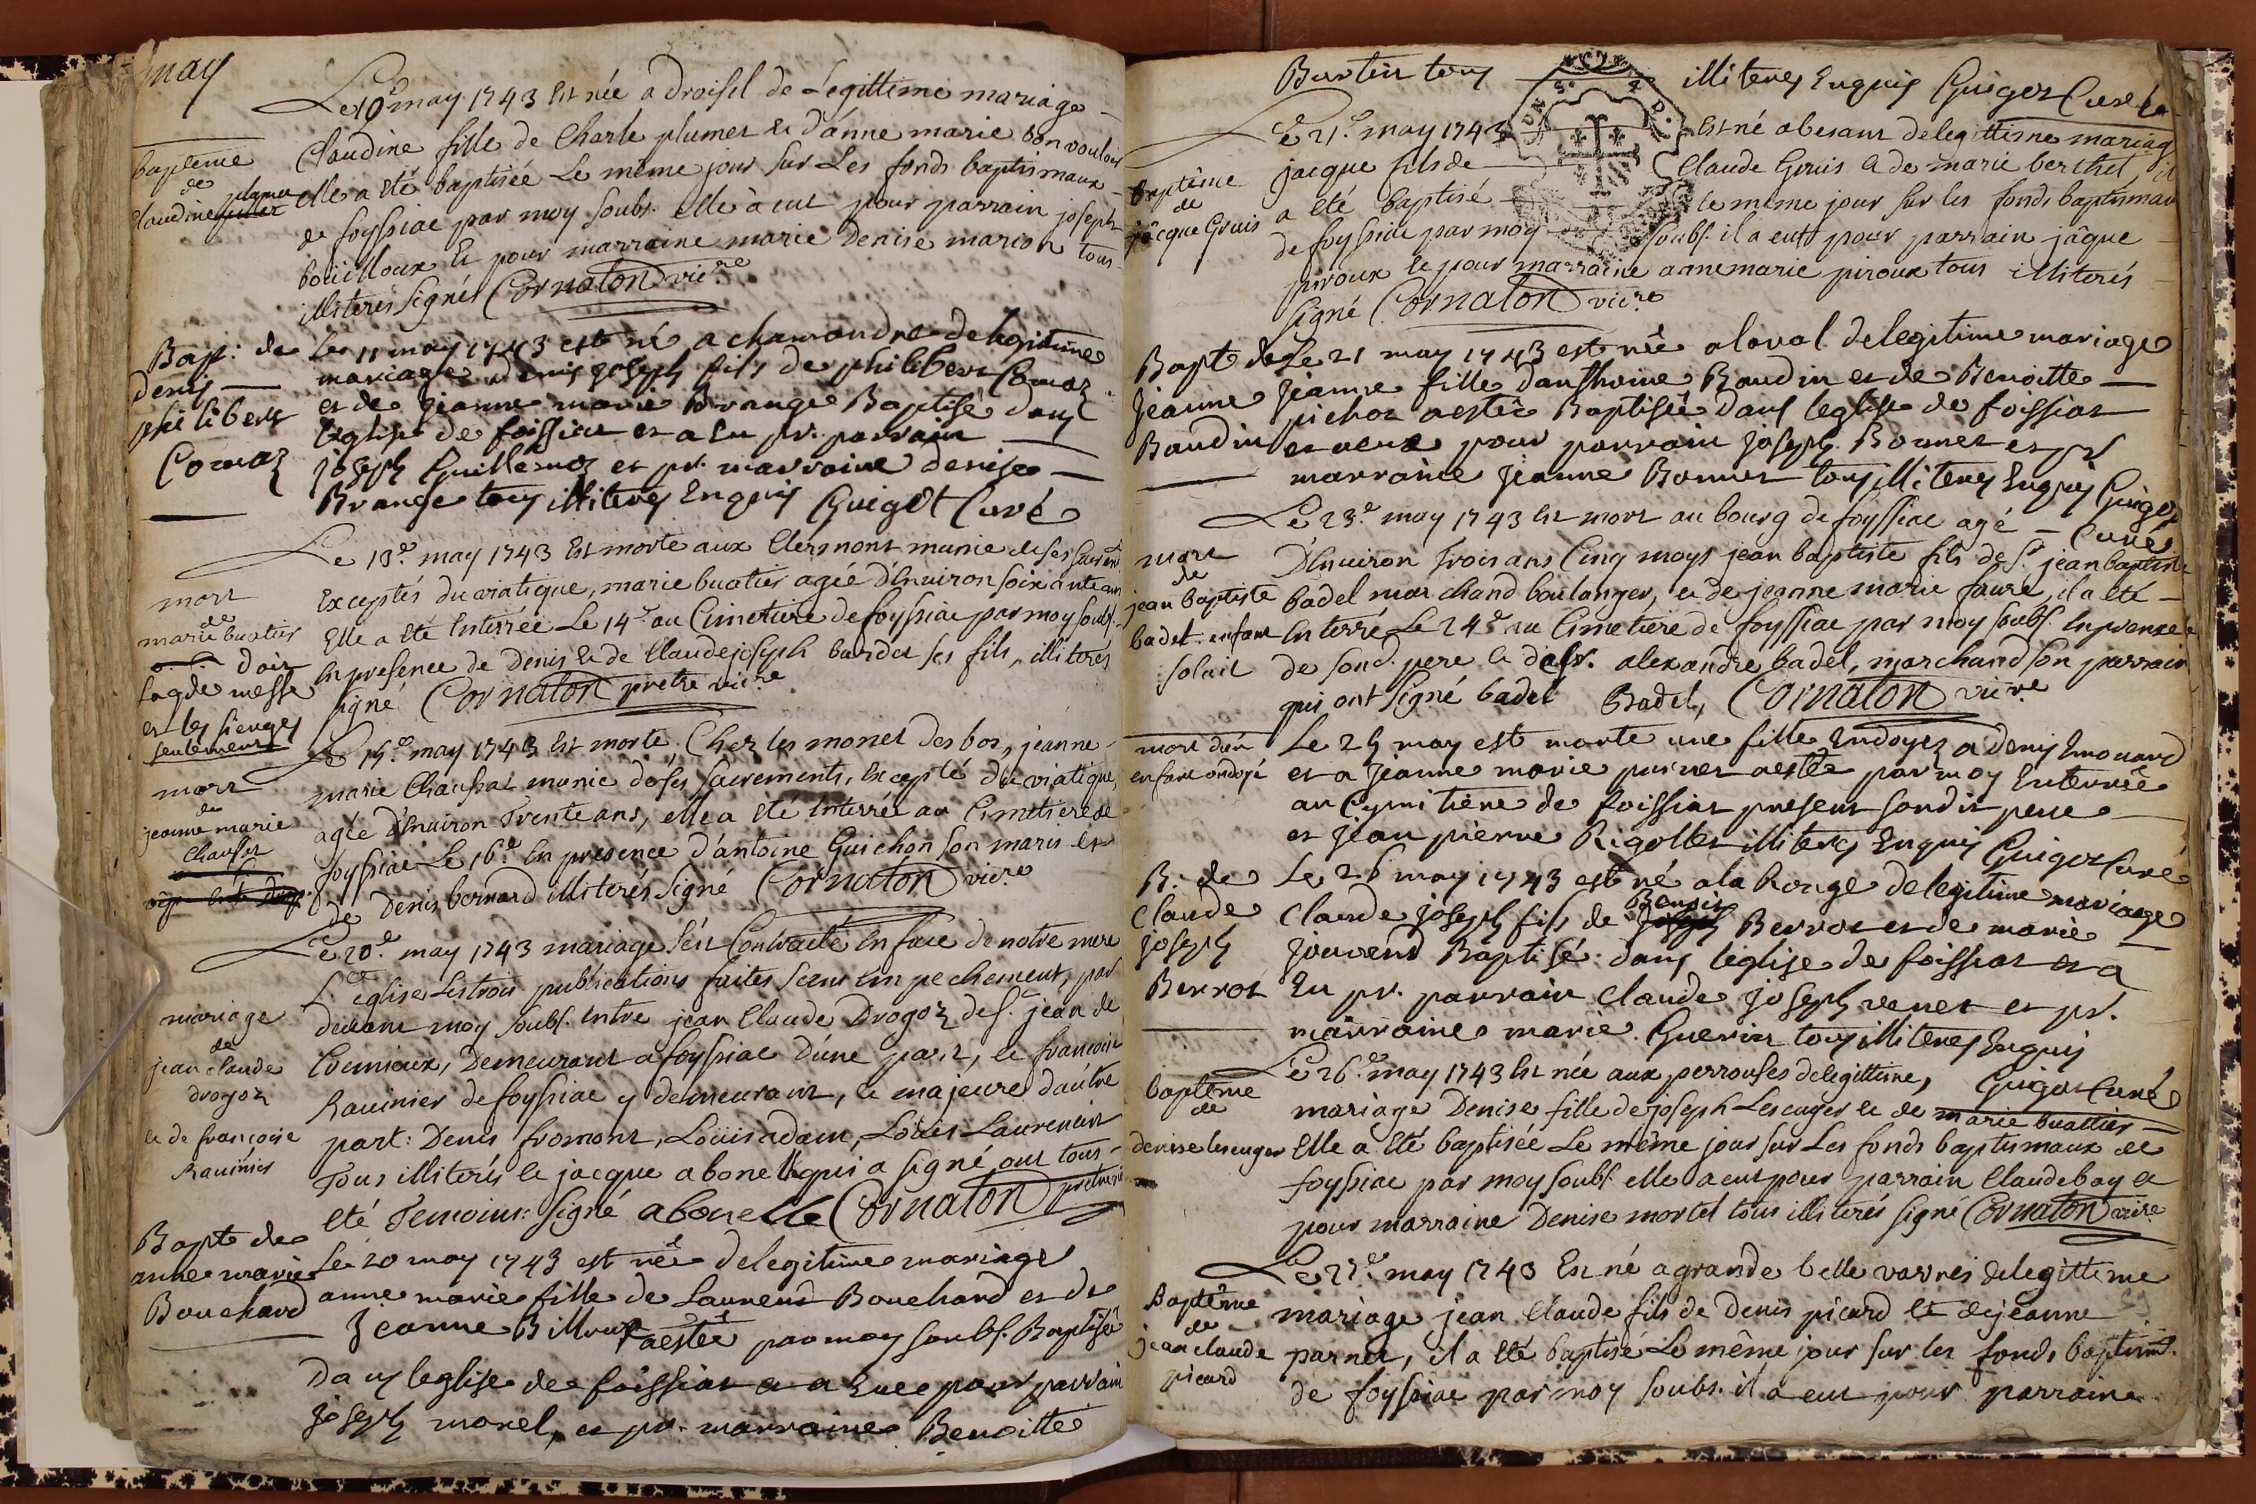 may
Le 10e may 1743 Est née a Droisel de Legittime mariage
Claudine fille de Charle plumet et d'anne marie bonvouloir
baptême de Claudine plumet
elle a été baptisée Le même jour sur Les fonds baptismaux
de foyssiac par moy soubs. elle à eut pour parrain joseph
boüilloux Et pour marraine marie Denise marion tous
illiterés signés Cornaton vicre
Bap: de denis philibert Comaz
Le 11 may 1743 est né a chamandre de legitime
mariage denis joseph fils de philibert Comaz
et de jeanne marie Brange Baptisé dans
leglise de foissiat et a Eu pr. parrain
joseph Guillemoz et pr. marraine denise
Brange tous illiteres Enquis Guigot Curé
Le 13e may 1743 Est morte aux Clermont munie de ses sacrem
mort de marie buatier
Exceptés du viatique, marie buatier agée d'Environ soixante ans
Elle a été Enterrée Le 14e au Cimetiere de foyssiac par moy soubs.
doit la gde messe et les sienges seulement
En presence de Denis et de Claude joseph bardet ses fils, illiterés
signé Cornaton pretre vicre
Le 15e may 1743 Est morte Chez les monet des bos, jeanne
mort de jeanne marie Chaussat
marie Chaussat munie de ses sacrements, Excepté du viatique,
agée d'Environ Trente ans, elle a été Enterrée au Cimetiere de
foyssiac Le 16e En presence d'antoine Guichon son maris et
de Denis bernard illiterés signé Cornaton vicre
Le 20e may 1743 mariage s'est Contracté En face de notre mere
Ste eglise Les trois publications faites sans Empechement, par
mariage de jean Claude Drogoz et de françoise Ravinier
devant moy soubs. Entre jean Claude Drogoz de St. jean de
Cormioux, Demeurant a foyssiac d'une part, et françoise
Ravinier de foyssiac y demeurant, et majeure d'autre
part: Denis fromont, Loüis adam, Loüis Laurencin
Tous illiterés et jacque abonel qui a signé ont tous
été Temoins: signé abonelle Cornaton pretre vic
Bapt de anne marie Bouchard
Le 20 may 1743 est née de legitime mariage
anne marie fille de Laurend Bouchard et de
Jeanne Billoux a esté par moy soubs. Baptisé
dans leglise de foissiat et a Eue pour parrain
joseph morel, et pr. marraine Benoitte
Burtin tous illiteres Enquis Guigot Curé
Le 21e may 1743 Est né a besant de legittime mariag
baptême de jâcque Gruis
jacque fils de Claude Gruis et de marie berthet, il
a été baptisé le même jour sur les fonds baptismau
de foyssiac par moy soubs. il a eut pour parrain jâque
piroux et pour marraine anne marie piroux tous illiterés
signé Cornaton vicre
Bapt de Jeanne Baudin
Le 21 may 1743 est née a laval de legitime mariage
Jeanne fille danthoine Baudin et de Benoitte
pichot a estée Baptisée dans leglise de foissiat
et a eue pour parrain joseph Bonnet et pr
marraine Jeanne Bonnet tous illiteres Enquis Guigot
Curé
Le 23e may 1743 Est mort au bourg de foyssiac agé
mort de jean baptiste badel enfant soluit
D'Environ trois ans Cinq moys jean baptiste fils de Sr jean baptiste
badel marchand boulanger, et de jeanne marie faure, il a été
Enterré Le 24e au Cimetiere de foyssiac par moy soubs. En presence
de son d. pere et de sr. alexandre badel, marchand son parrain
qui ont signé badel Badel, Cornaton vicre
mort d'un enfant ondoyé
Le 25 may est morte une fille Endoyez a denis Emouard
et a jeanne marie puinet a estée par moy Enterrée
au Cymitiere de foissiat present son dit pere
et jean pierre Rigollet illiteres Enquis Guigot Curé
B. de Claude joseph Berrot
Le 25 may 1743 est né a la Rouge de legitime mariage
Claude joseph fils de Benoit Berrot et de marie
Jouvend Baptisé dans leglise de foissiat et a
Eu pr. parrain Claude joseph venet et pr.
marraine marie Guerin tous illiteres Enquis
Guigot Curé
Le 26e may 1743 Est née aux perrouses de legittime,
baptême de denise lescuyer
mariage Denise fille de joseph Lescuyer et de marie buattier
Elle a été baptisée Le même jour sur Les fonds baptismaux de
foyssiac par moy soubs. elle a eut pour parrain Claude bay et
pour marraine Denise mortel tous illiterés signé Cornaton vicre
Le 27e may 1743 Est né a grande belle varnes de legittime
Baptême de jean claude picard
mariage jean Claude fils de Denis picard Et de jeanne
parnet, il a été baptisé Le même jour sur les fonds baptism.
de foyssiac par moy soubs. il a eut pour parraine